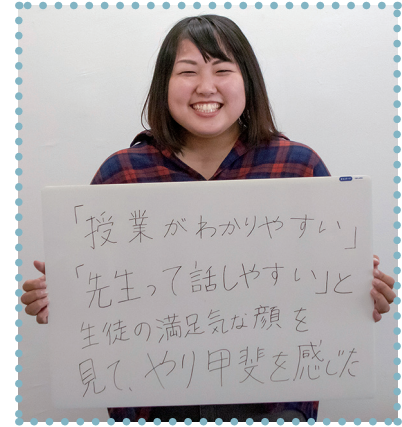 「授業がわかりやすい」
「先生って話しやすい」と
生徒の満足気な顔を
見て、やり甲斐を感じた